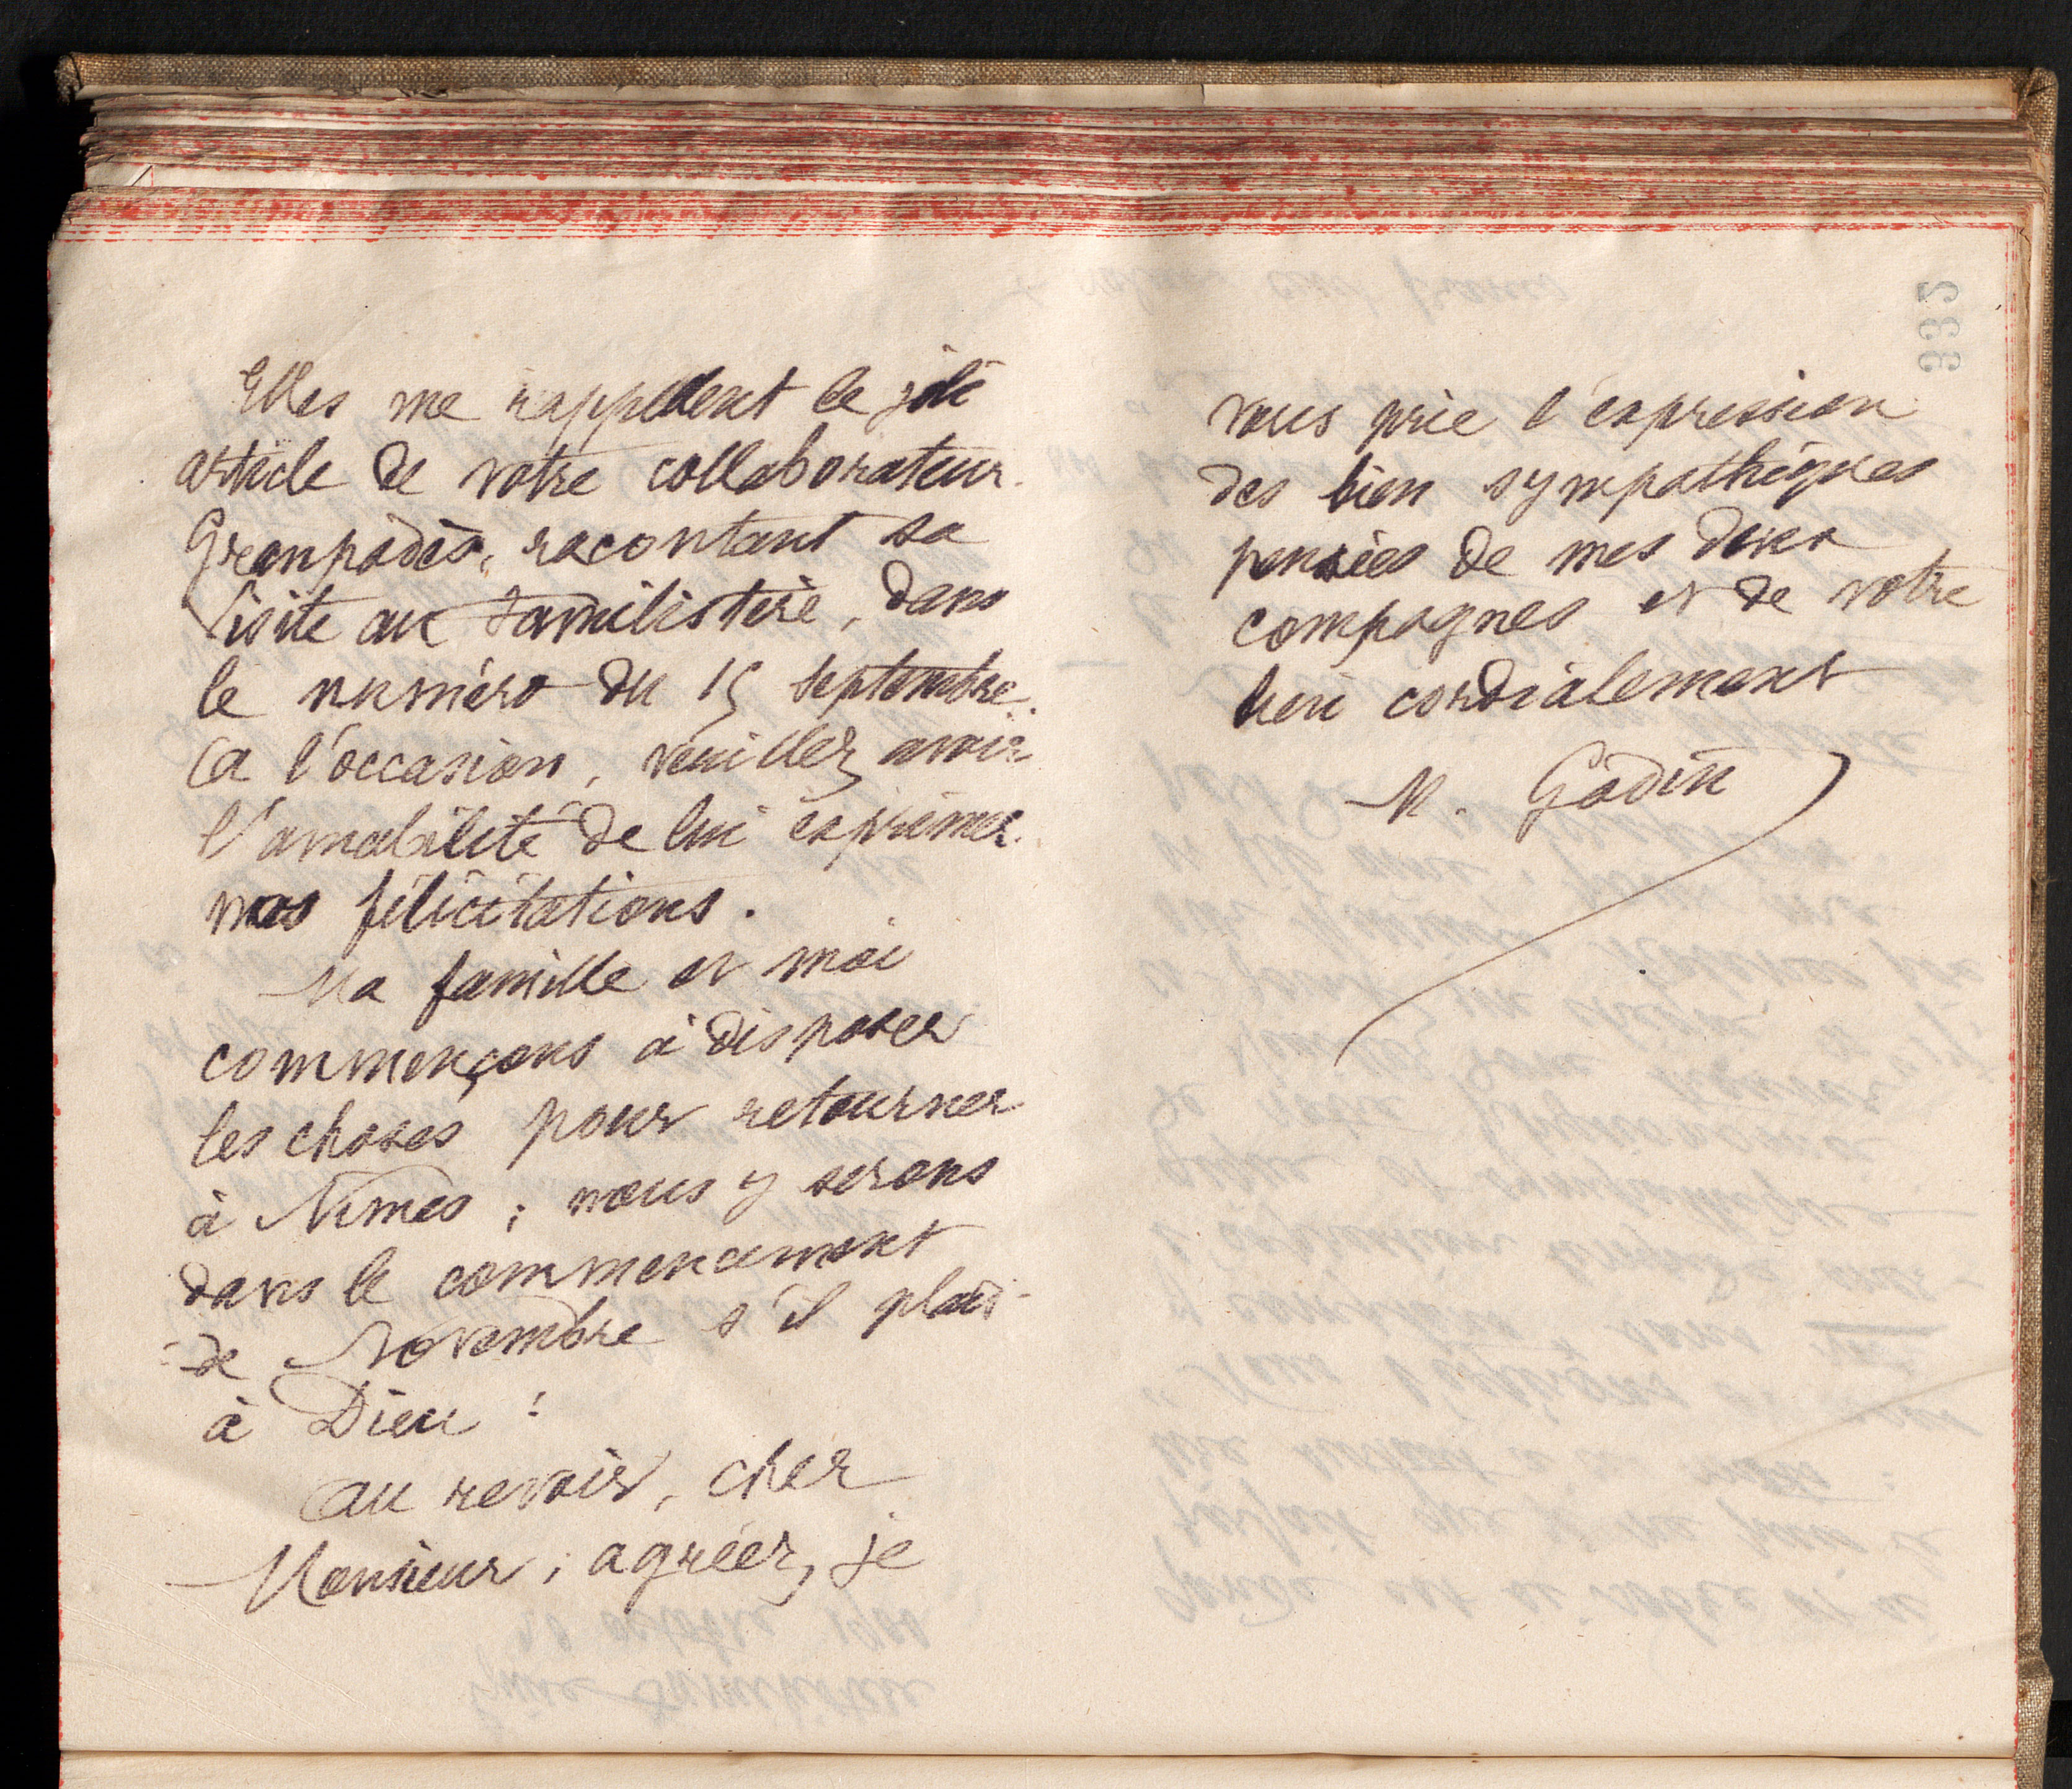 Elles me rappellent le joli
article de votre collaborateur
racontant sa
visite au Familistère, dans
le numéro du 15 septembre.
A l'occasion, veuillez avoir
l'amabilité de lui exprimer
nos félicitations.
Ma famille et moi
commençons à disposer
les choses pour retourner
à Nimes ; nous y serons
dans le commencement
de Novembre s'il plait
à Dieu !
Au revoir, cher
Monsieur ; agréez, je
332
vous prie l'expression
des bien sympathiques
pensées de mes deux
compagnes et de votre
bien cordialement
M. Godin